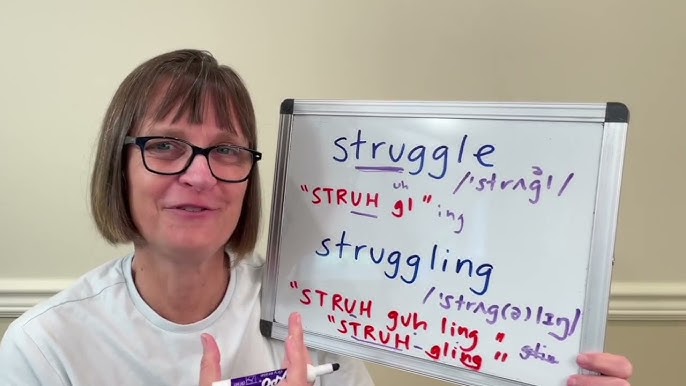 struggle
/ˈstrʌgəl/
uh
"STRUH gl" ing
struggling
/ˈstrʌg(ə)lɪŋ/
"STRUH guh ling"
"STRUH-gling"